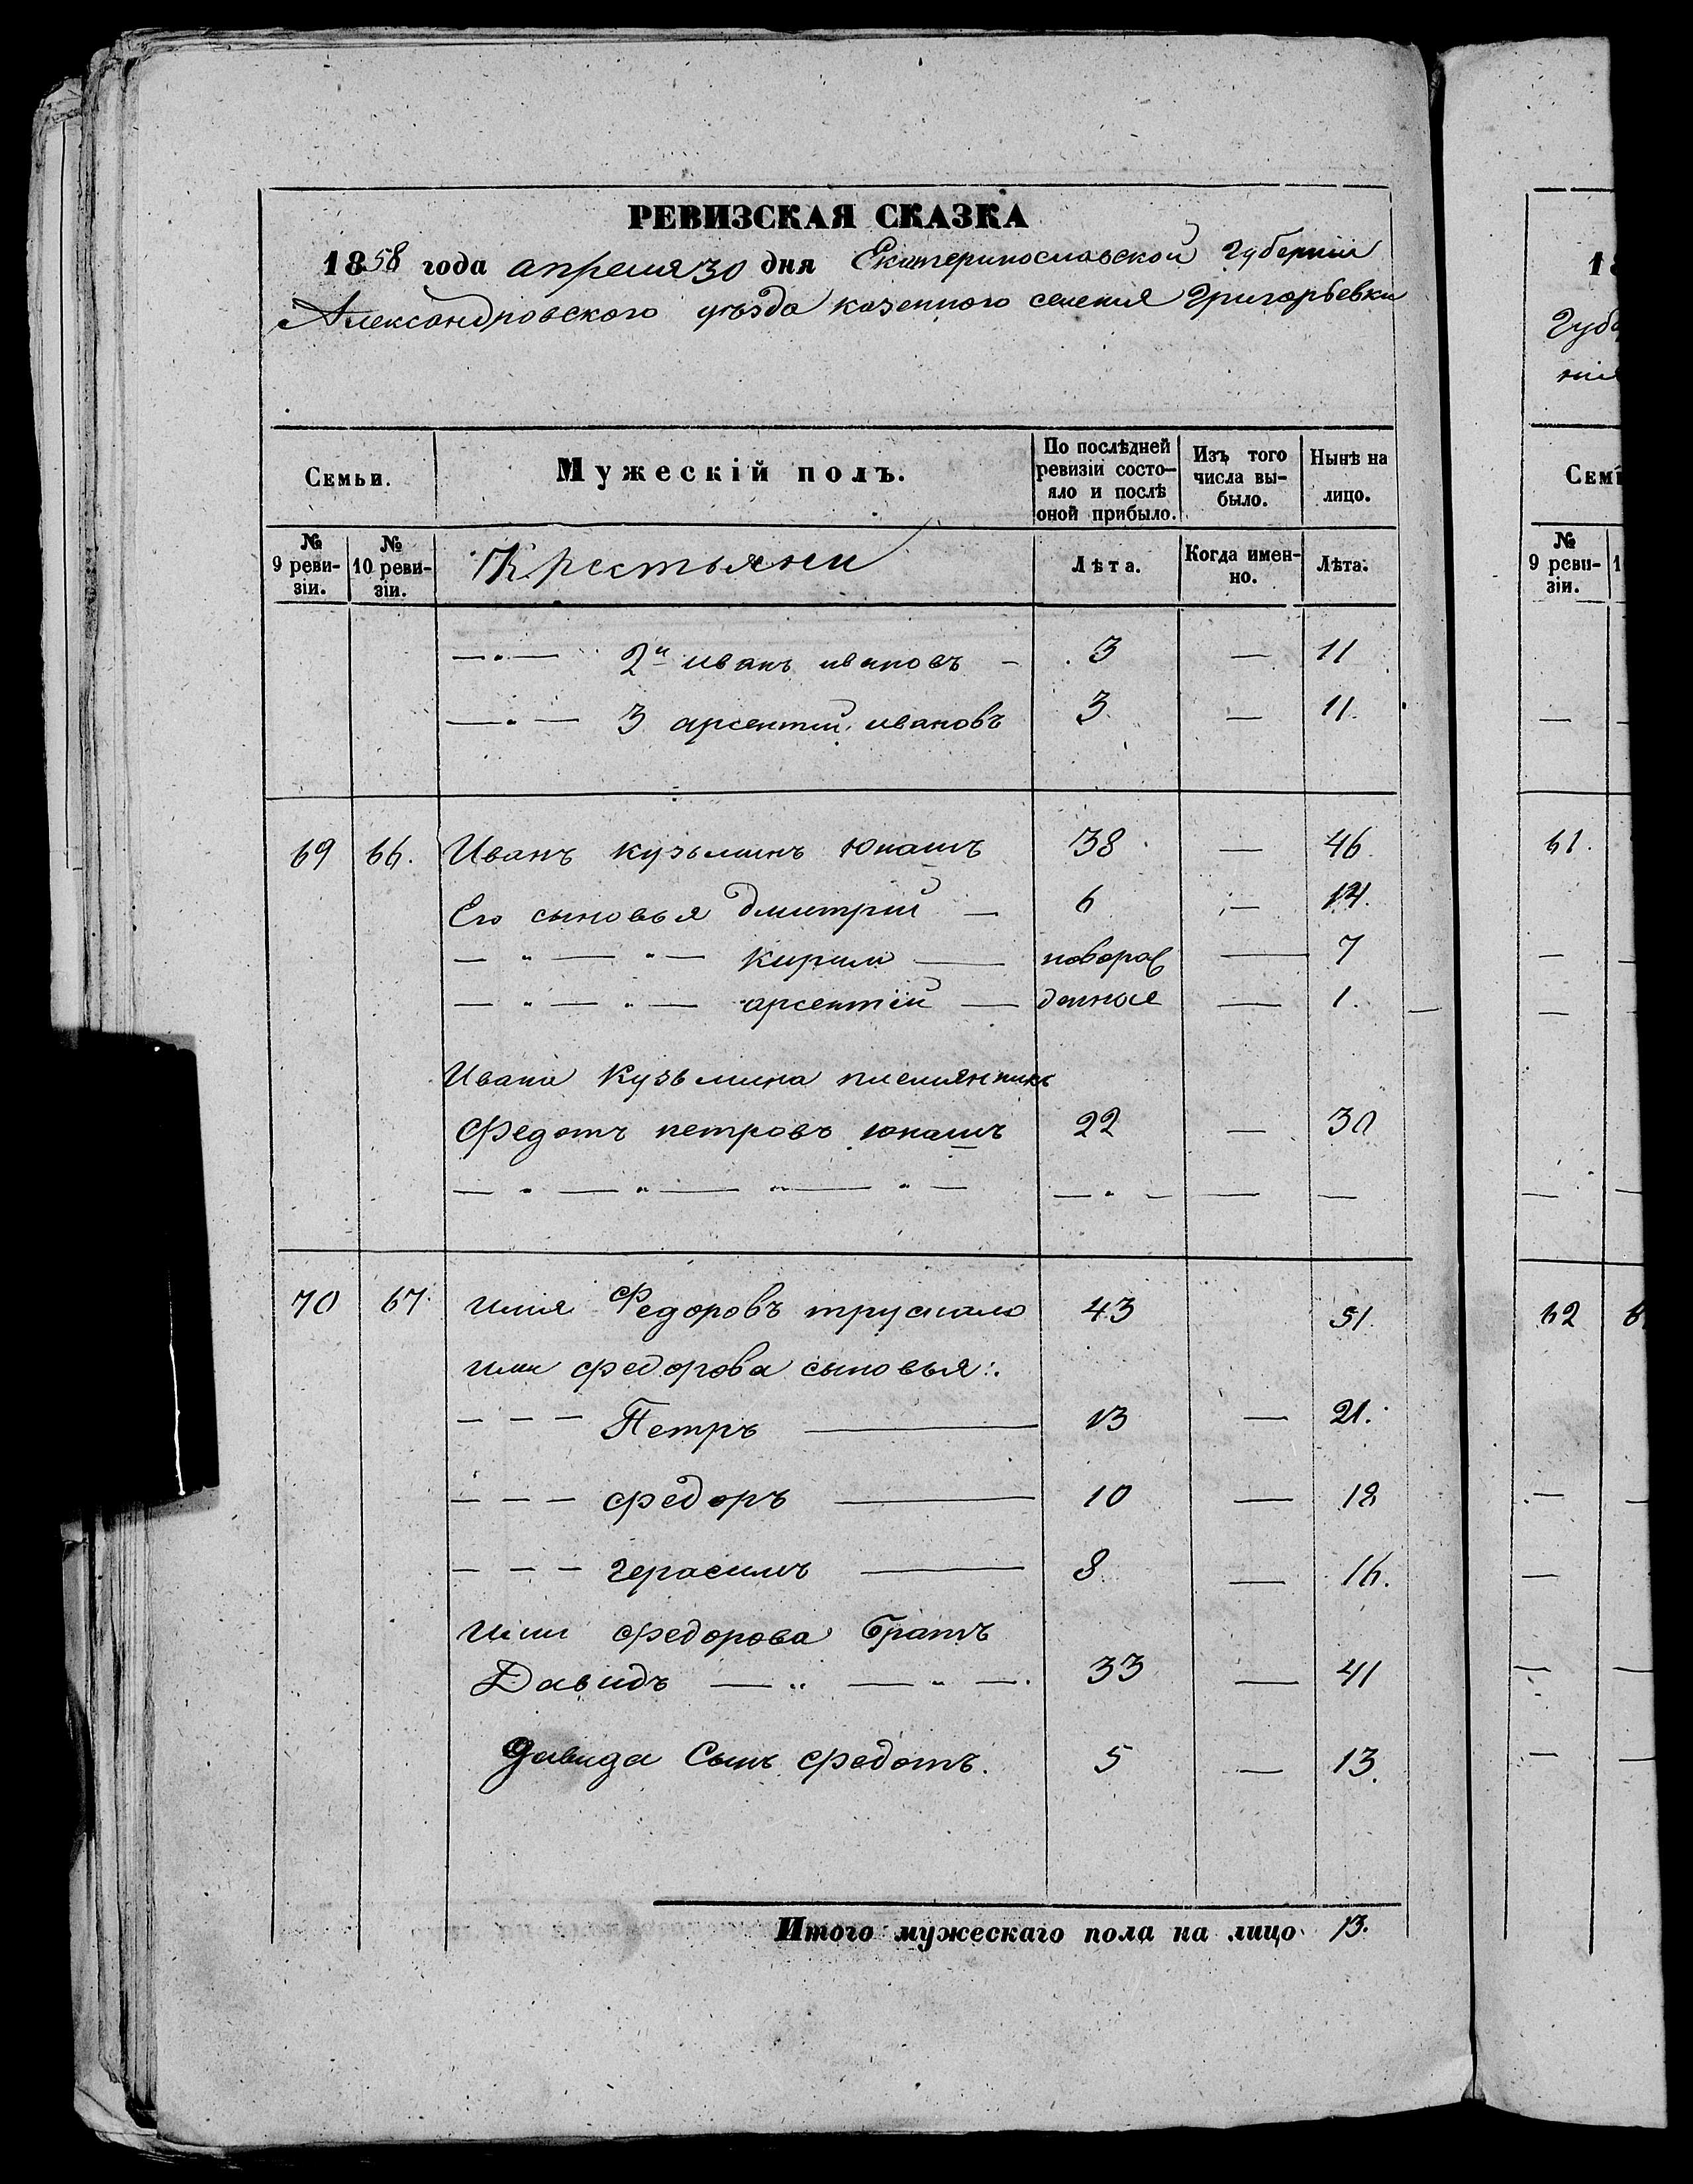 РЕВИЗСКАЯ СКАЗКА
1858 года апреля 30 дня Екатеринославской губернии
Александровского уѣзда казенного селения Григорьевки
Семьи.
Мужескій полъ.
По послѣдней ревизіи состо-
яло и послѣ
оной прибыло.
Изъ того
числа вы-
было.
Нынѣ на
лицо.
№ 9 реви-
зіи.
№ 10 реви-
зіи.
Крестьяни
Лѣта.
Когда имен-
но.
Лѣта.
— " — 2й иванъ ивановъ — 3 — 11
— " — 3 арсентий ивановъ 3 — 11.
69 66. Иванъ кузьминъ Юнашъ 38 — 46.
Его сыновья дмитрий — 6 — 14.
— " — " — кирило — новорож — 7
— " — " — арсентій — денные — 1.
Ивана Кузьмина племянникъ
Федотъ петровъ юнашъ 22 — 30
— " — " — " — " — — " — — —
70 67. илия Федоровъ трускало 43 51.
или федорова сыновья:.
— — — Петръ — 13 — 21.
— — — федоръ — 10 — 18
— — — герасимъ — 8 — 16.
или федорова братъ
Давидъ — " — " — . 33 — 41
Давида Сынъ федотъ. 5 — 13.
Итого мужескаго пола на лицо 13.
18
Губе
ния
Семь
№ 9 реви-
зіи.
1
61.
62 6